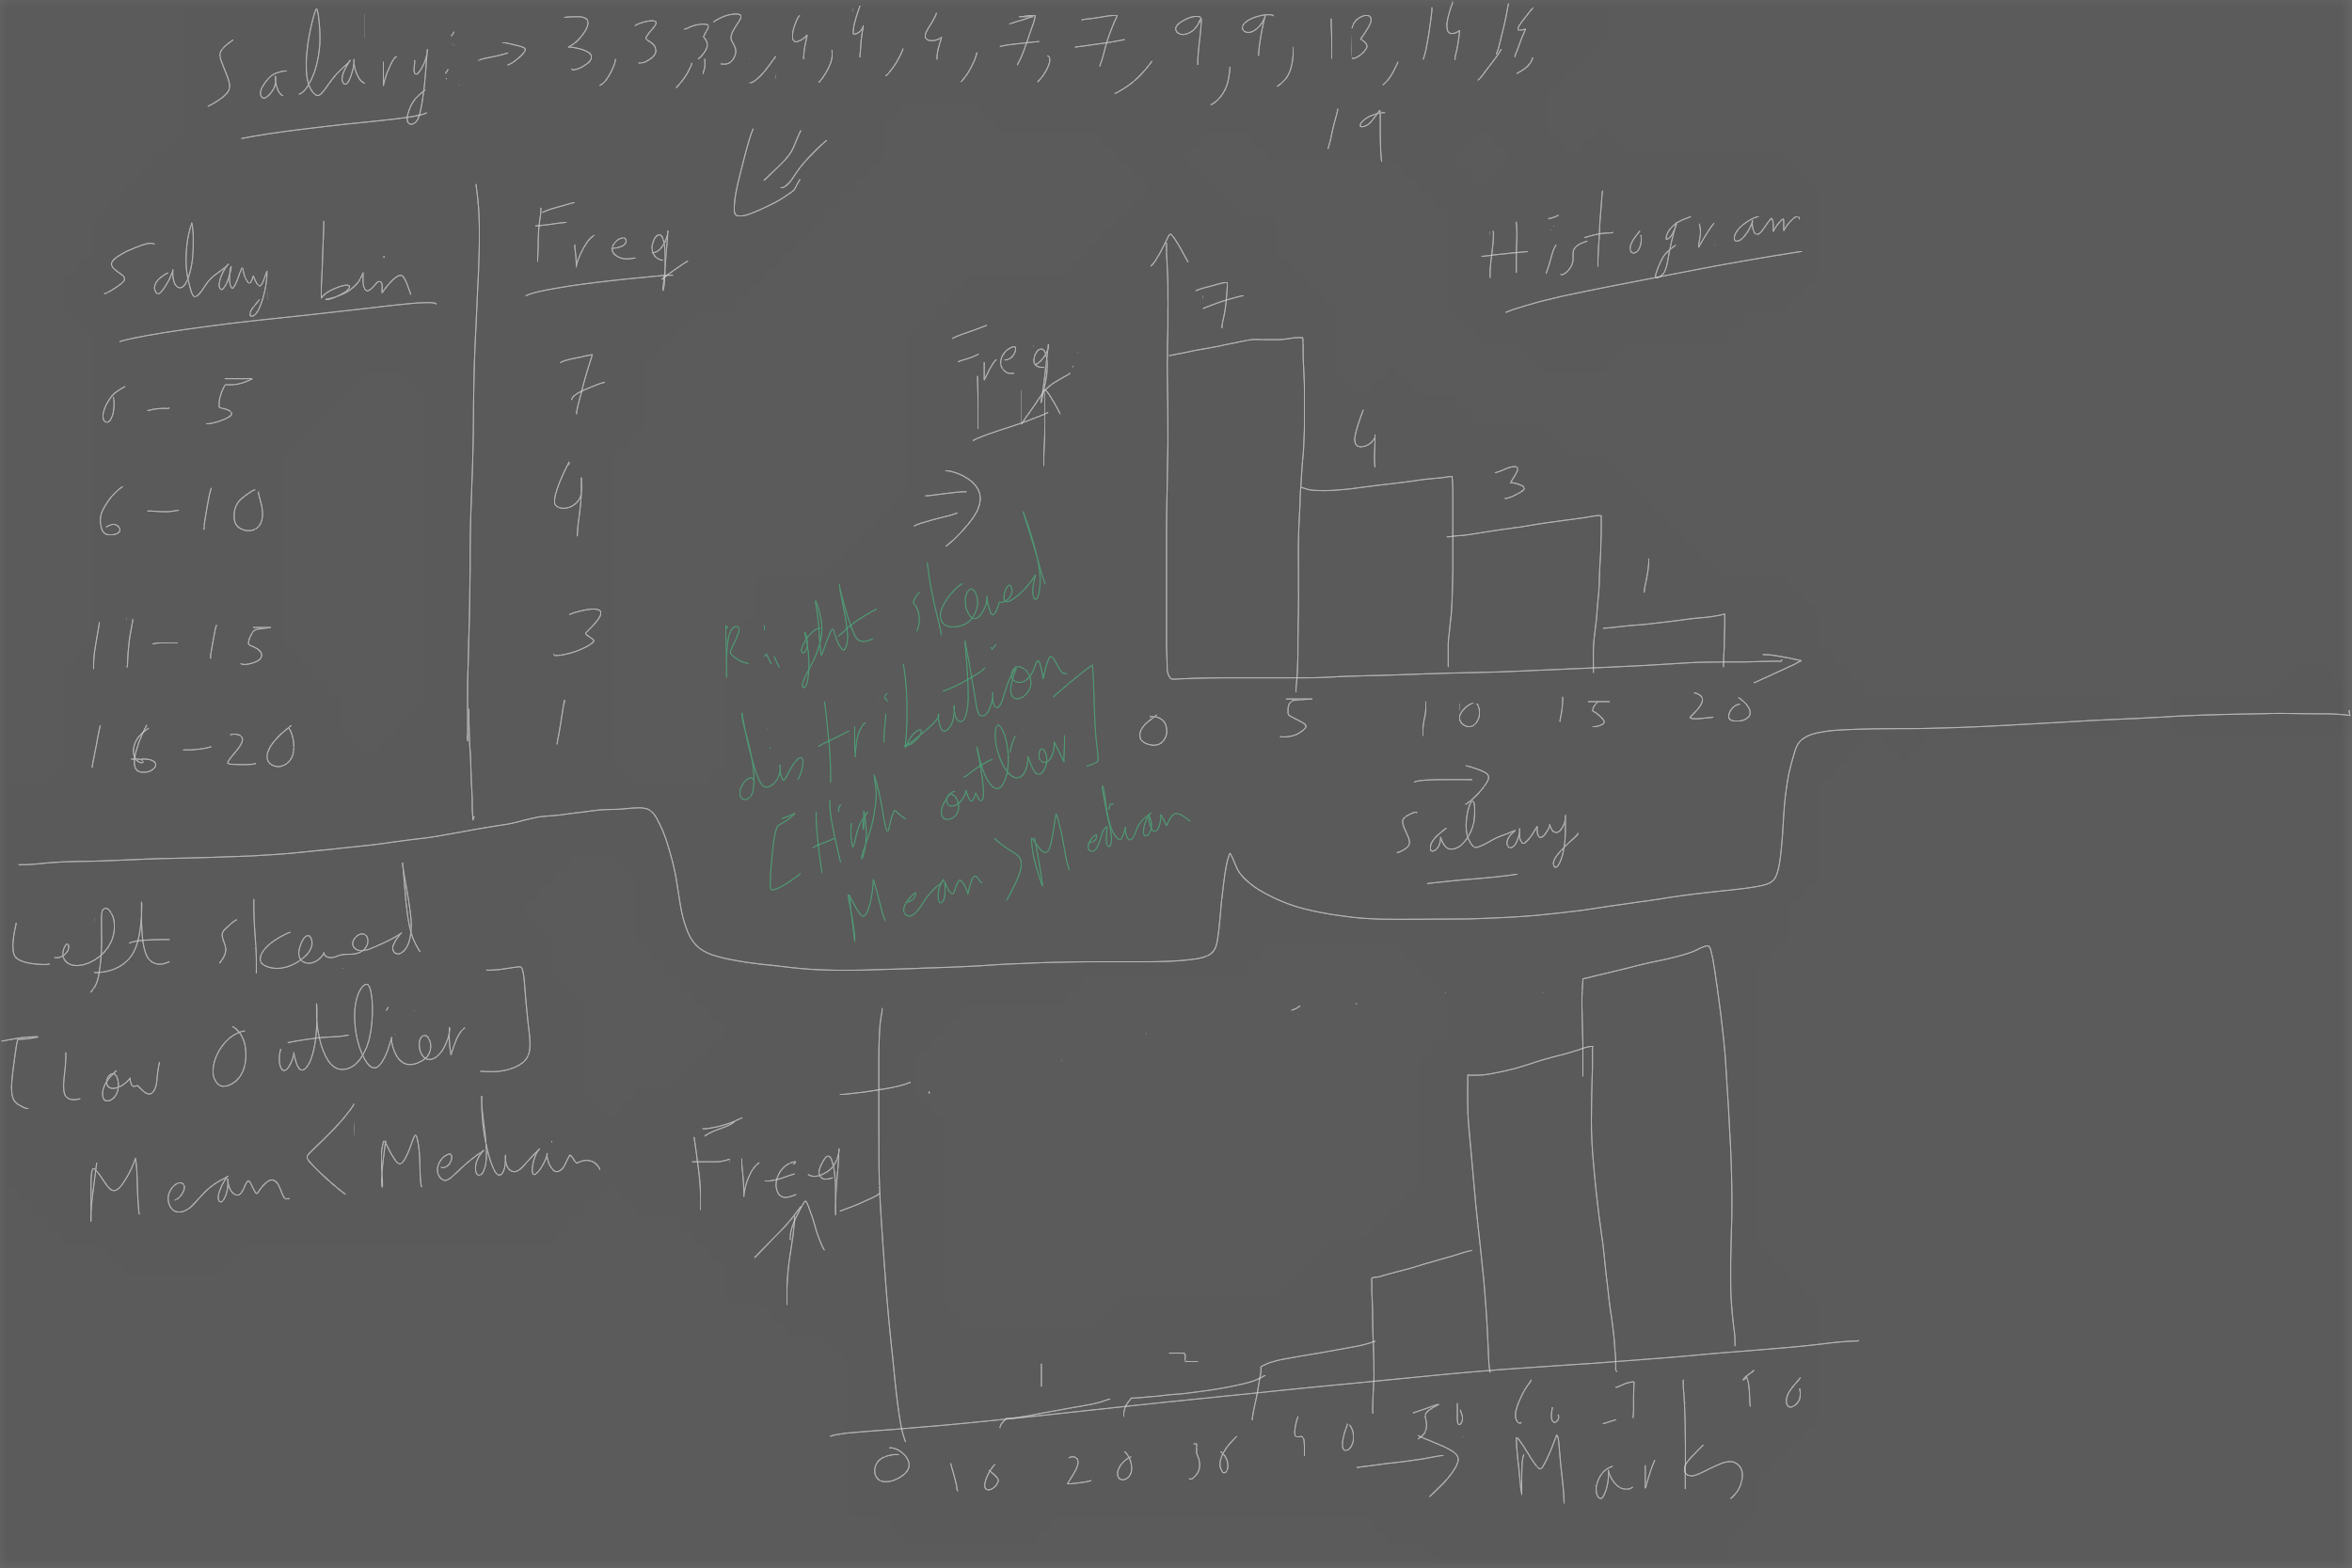 Salary: → 3, 3, 3, 3, 4, 4, 4, 7, 7, 9, 9, 13, 14, 15,
19
Salary bin
Freq
0 - 5
7
6 - 10
4
11 - 15
3
16 - 20
1
Histogram
Freq
7
4
3
1
0 5 10 15 20
Salary
Right skewed
distribution
[High outlier]
Mean > Median
Left skewed
[Low Outlier]
Mean < Median
Freq
1
0 10 20 30 40 50 60 7
Marks